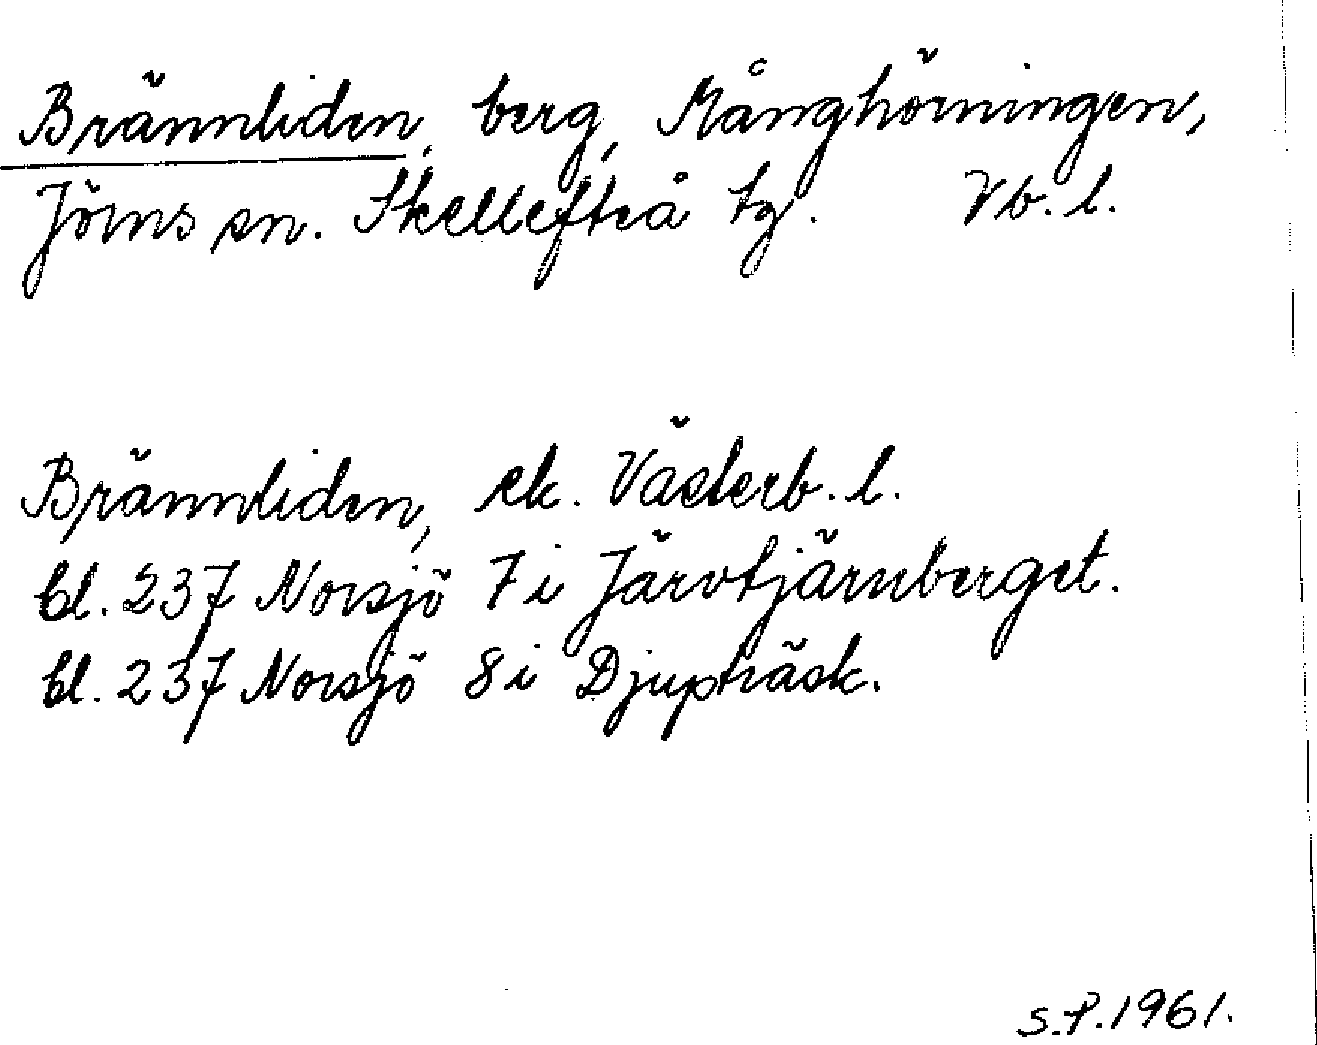 Brännliden, berg, Månghörningen,
Jörns sn. Skellefteå tg. Vb. l.
Brännliden, ek. Västerb. l.
bl. 237 Norsjö 7 i Järvtjärnberget.
bl. 237 Norsjö 8 i Djupträsk.
S.P. 1961.